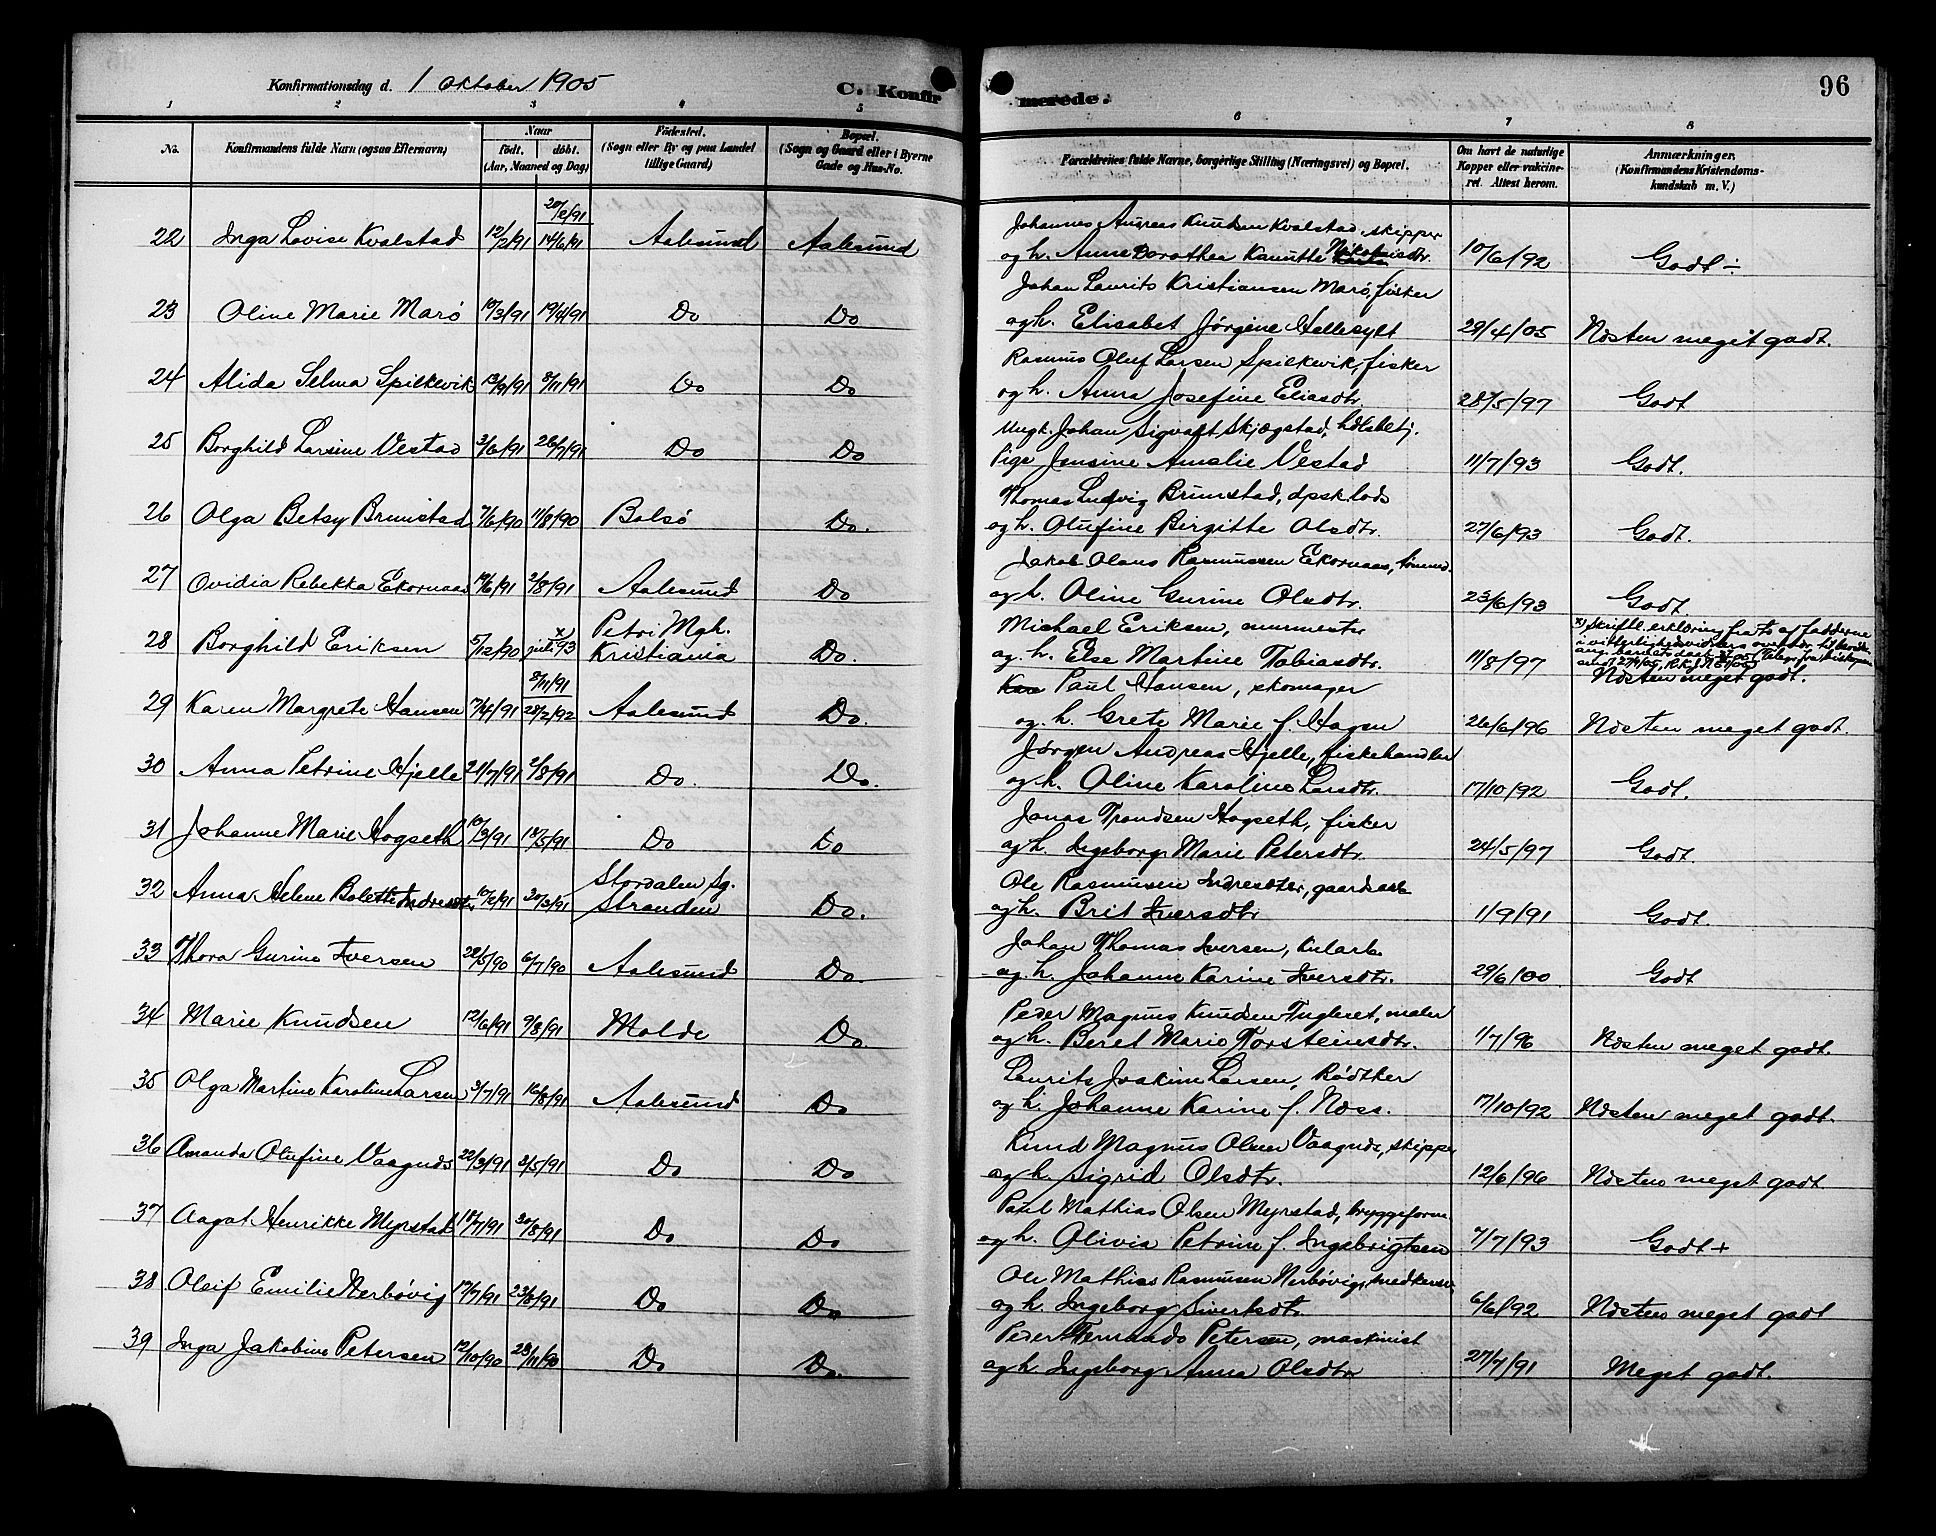 96
Konfirmationsdag d. 1 Oktober 1905
C. Konfirmerede.
1 2 3 4 5 6 7 8
No. Konfirmandens fulde Navn (ogsaa Efternavn) Naar født. døbt. (Aar, Maaned og Dag) Fødested. (Sogn eller By og paa Landet tillige Gaard) Bopæl. (Sogn og Gaard eller i Byerne Gade og Hus-No. Forældrenes fulde Navne, borgerlige Stilling (Næringsvei) og Bopæl. Om havt de naturlige Kopper eller vakcineret. Attest herom. Anmærkninger. (Konfirmandens Kristendomskundskab m. V.)
20/2/91 Johannes Andreas Knudsen Kvalstad, skipper
22 Inga Lovise Kvalstad 12/2/91 14/6/91 Aalesund Aalesund og h. Anne Dorothea Kanutte 10/6/92 Godt ÷
Johan Laurits Kristiansen Marø, fisker
23 Oline Marie Marø 10/3/91 19/4/91 Do Do og h. Elisabet Jørgine Hellesylt 29/4/05 Næsten meget godt.
Rasmus Oluf Larsen Spilkevik, fisker
24 Alida Selma Spilkevik 13/9/91 8/11/91 Do Do og h. Anna Josefine Eliasdtr. 28/5/97 Godt
Ungk. Johan Sigvalt Skjægstad, hdlsbetj.
25 Borghild Larsine Vestad 3/6/91 26/7/91 Do Do Pige Jensine Amalie Vestad 11/7/93 Godt.
Thomas Ludvig Brunstad, dpsklods
26 Olga Betsy Brunstad 7/6/90 11/8/90 Bolsø Do. og h. Olufine Birgitte Olsdtr. 27/6/93 Godt.
Jakob Olaus Rasmussen Ekornaas, tømmd.
27 Ovidia Rebekka Ekornaas 19/6/91 2/8/91 Aalesund Do og h. Oline Gurine Olsdtr. 23/6/93 Godt
Petri Mgh. Michael Eriksen, murmester x) Skriftl. erklæring fra to af fadderne
28 Borghild Eriksen 5/12/90 x juli 93 Kristiania Do. og h. Else Martine Tobiasdtr. 11/8/97 Næsten meget godt.
8/11/91 Paul Hansen, skomager
29 Karen Margrete Hansen 17/4/91 28/2/92 Aalesund Do. og. h. Grete Marie f. Hagen 26/6/96 Næsten meget godt.
Jørgen Andreas Hjelle, fiskehandler
30 Anna Petrine Hjelle 21/7/91 2/8/91 Do. Do. og h. Oline Karoline Larsdtr. 17/10/92 Godt.
Jonas Trondsen Hogseth, fisker
31 Johanne Marie Hogseth 10/3/91 18/5/91 Do Do og h. Ingeborg Marie Petersdtr. 24/5/97 Godt.
Stordalen sg. Ole Rasmussen Indresæter, gaardsarb
32 Anna Helene Bolette Indresæter 10/2/91 30/3/91 Stranden Do. og h. Brit Iversdtr 1/9/91 Godt.
Johan Thomas Iversen, kularb.
33 Thora Gurine Iversen 28/5/90 6/7/90 Aalesund Do. og. h. Johanne Karine Iversdtr. 29/6/00 Godt
Peder Magnus Knudsen Fugleset, maler
34 Marie Knudsen 12/6/91 9/8/91 Molde Do. og h. Beret Marie Torsteinsdtr. 1/7/96 Næsten meget godt.
Laurits Joakim Larsen, Bødtker
35 Olga Martine Karoline Larsen 3/7/91 16/8/91 Aalesund Do og h. Johanne Karine f. Næss. 17/10/92 Næsten meget godt.
Knud Magnus Olsen Vaagnæs, skipper
36 Amanda Olufine Vaagnæs 22/3/91 3/5/91 Do Do og h. Sigrid Olsdtr. 12/6/96 Næsten meget godt
Paul Mathias Olsen Myrstad, bryggeform.
37 Aagot Henrikke Myrstad 18/7/91 30/8/91 Do Do og h. Olivia Petrine f. Ingebrigtsen 7/7/93 Godt +
Ole Mathias Rasmussen Nerbøvig,
38 Oleif Emilie Nerbøvig 17/7/91 23/8/91 Do Do og h. Ingeborg Sivertsdtr. 6/6/92 Næsten meget godt
Peder Fernando Petersen, maskinist
39 Inga Jakobine Petersen 12/10/90 23/11/90 Do Do. og h. Ingeborg Anna Olsdtr 27/7/91 Meget godt.